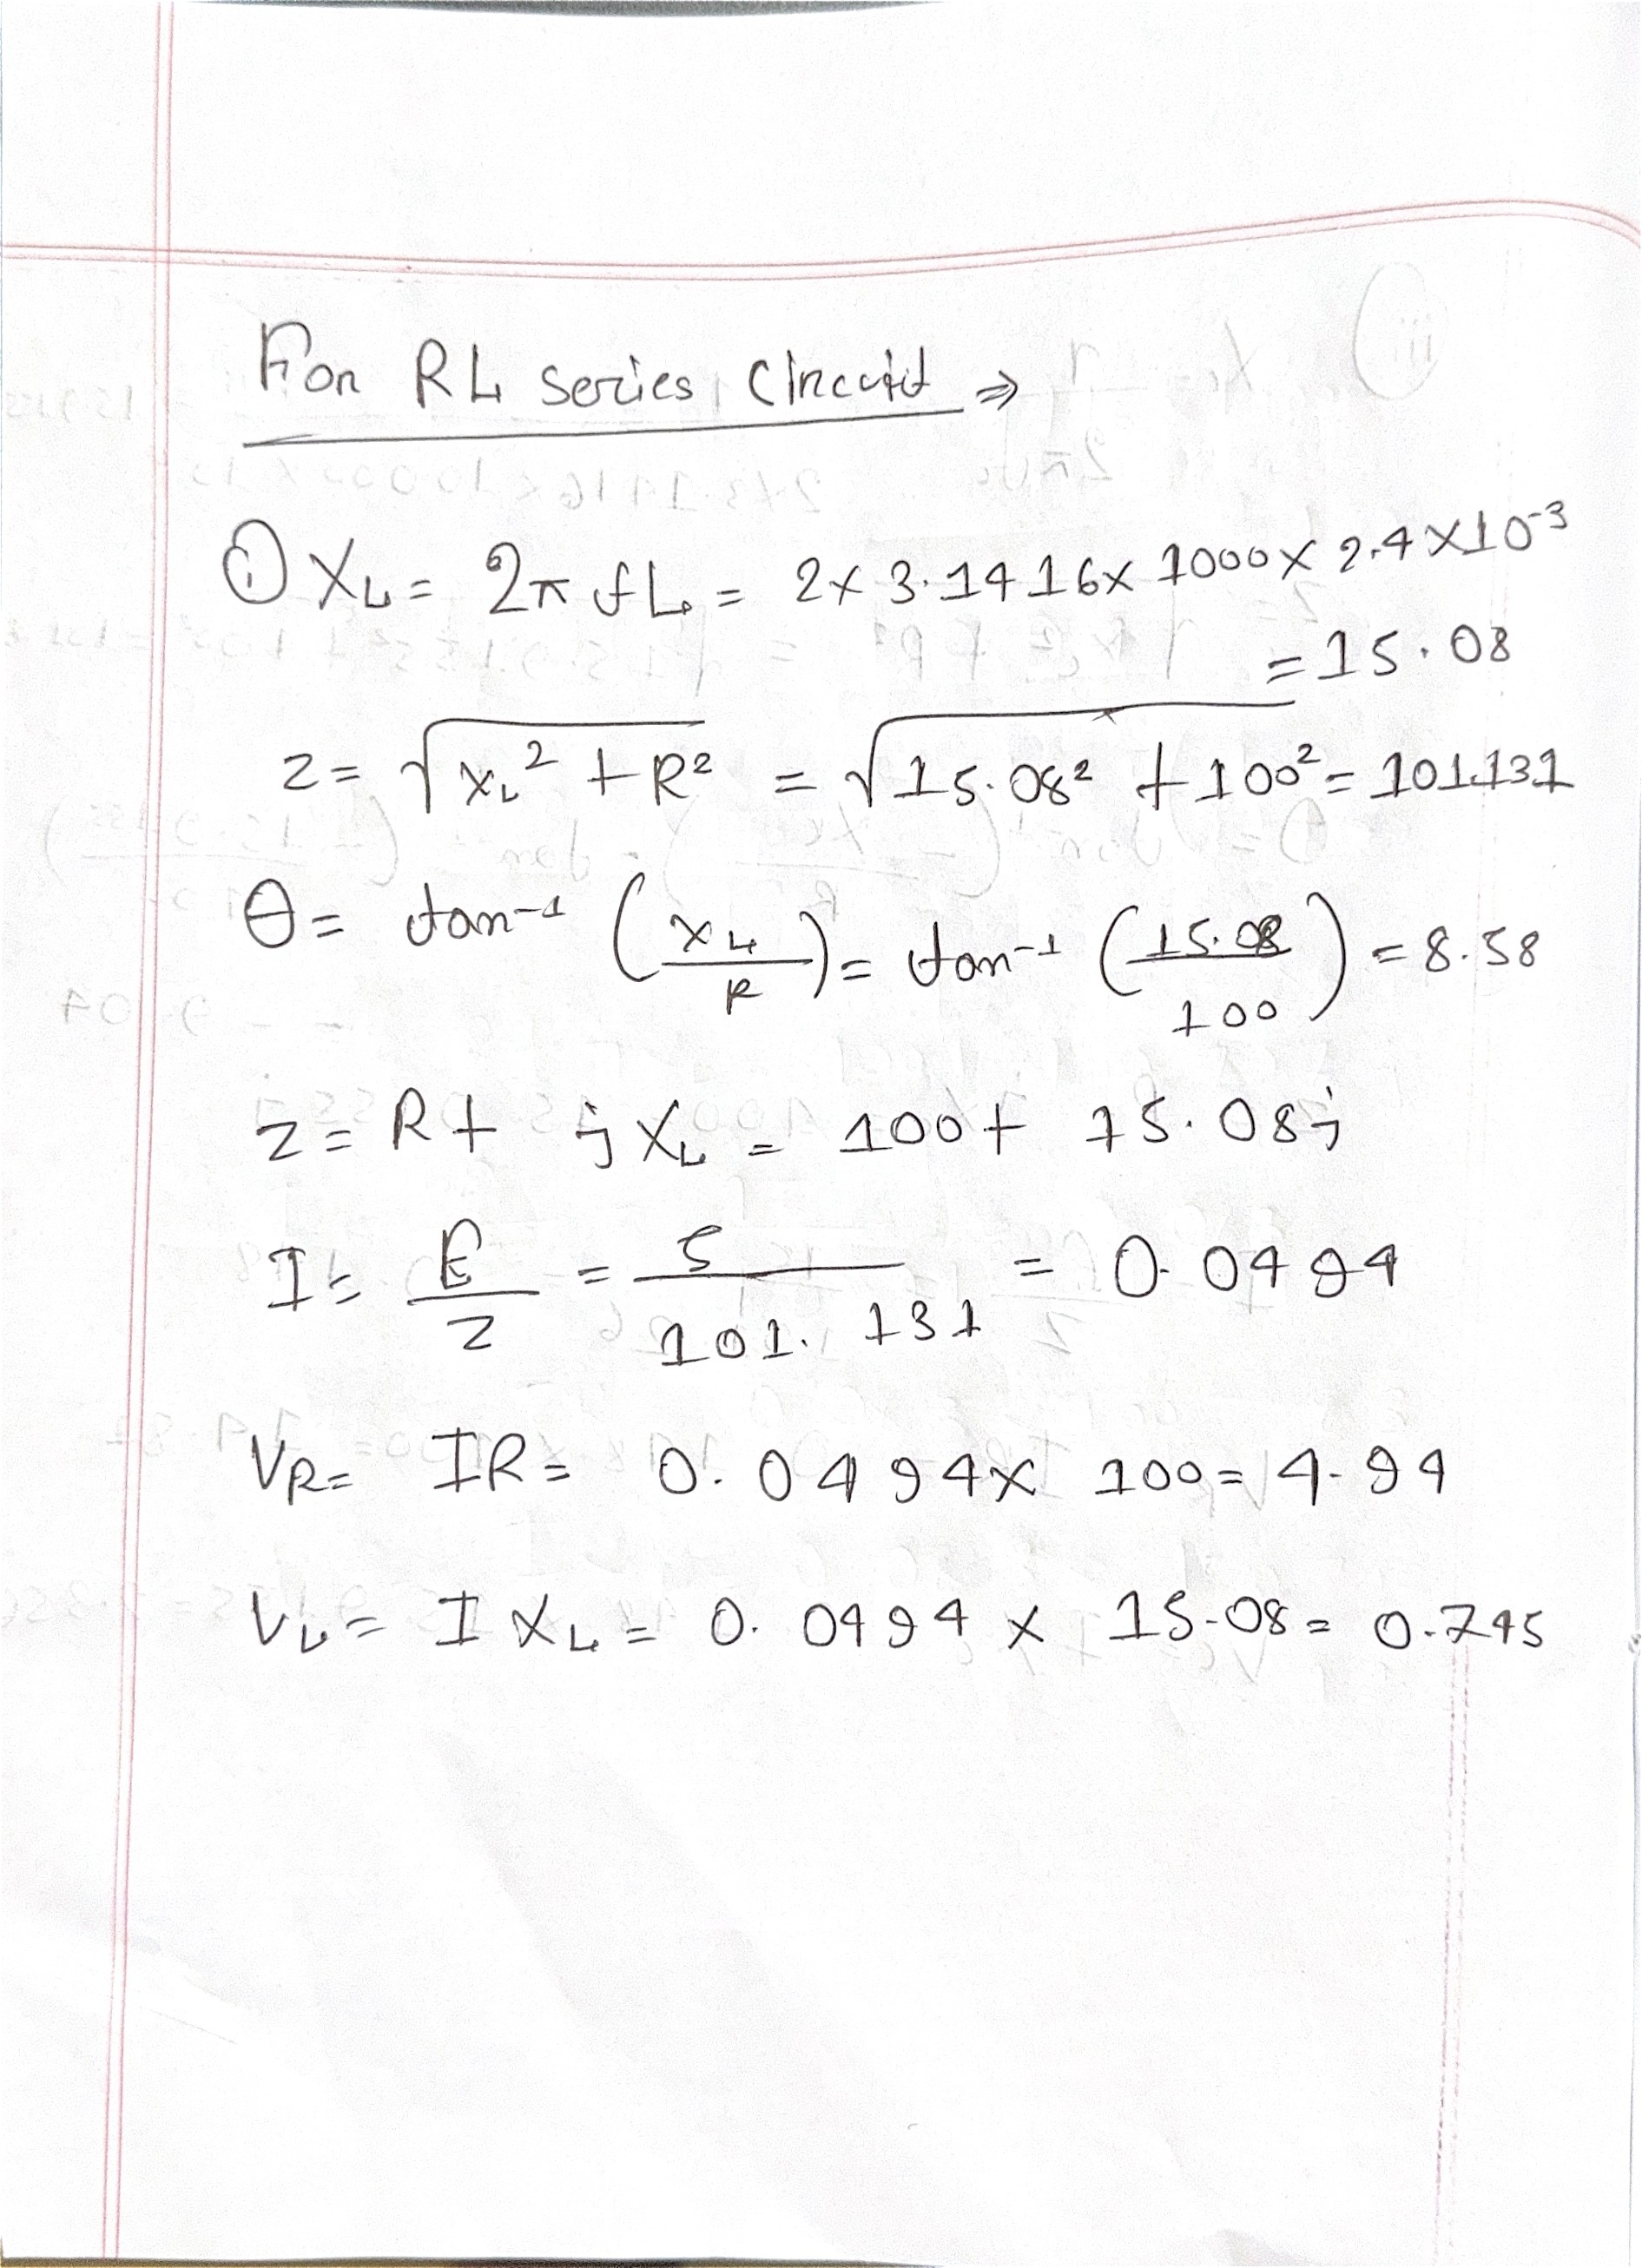 For RL series Circuit ⇒
① X_L = 2π f L = 2 x 3.1416 x 1000 x 2.4 x 10^-3
= 15.08
z = √(X_L^2 + R^2) = √(15.08^2 + 100^2) = 101.131
θ = tan^-1 (X_L / R) = tan^-1 (15.08 / 100) = 8.58
z = R + j X_L = 100 + 15.08j
I = E / Z = 5 / 101.131 = 0.0494
V_R = IR = 0.0494 x 100 = 4.94
V_L = I X_L = 0.0494 x 15.08 = 0.745